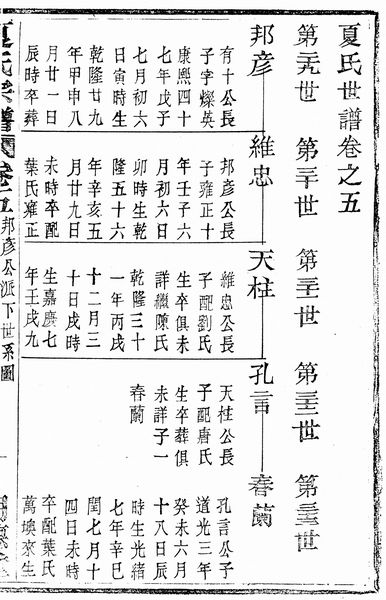 夏氏世譜卷之五
第二九世 第三十世 第三十一世 第三十二世 第三十三世
邦彥 維忠 天柱 孔言 春蘭
有十公長
子字燦英
康熙四十
七年戊子
七月初六
日寅時生
乾隆廿九
年甲申八
月廿一日
辰時卒葬
邦彥公長
子雍正十
年壬子六
月初六日
卯時生乾
隆五十六
年辛亥五
月廿九日
未時卒配
葉氏雍正
維忠公長
子配劉氏
生卒俱未
詳繼陳氏
乾隆三十
一年丙戌
十二月三
十日戌時
生嘉慶七
年壬戌九
天柱公長
子配唐氏
生卒葬俱
未詳子一
春蘭
孔言公子
道光三年
癸未六月
十八日辰
時生光緒
七年辛巳
閏七月十
四日未時
卒配葉氏
萬塽來生
夏氏宗譜 邦彥公派下世系圖